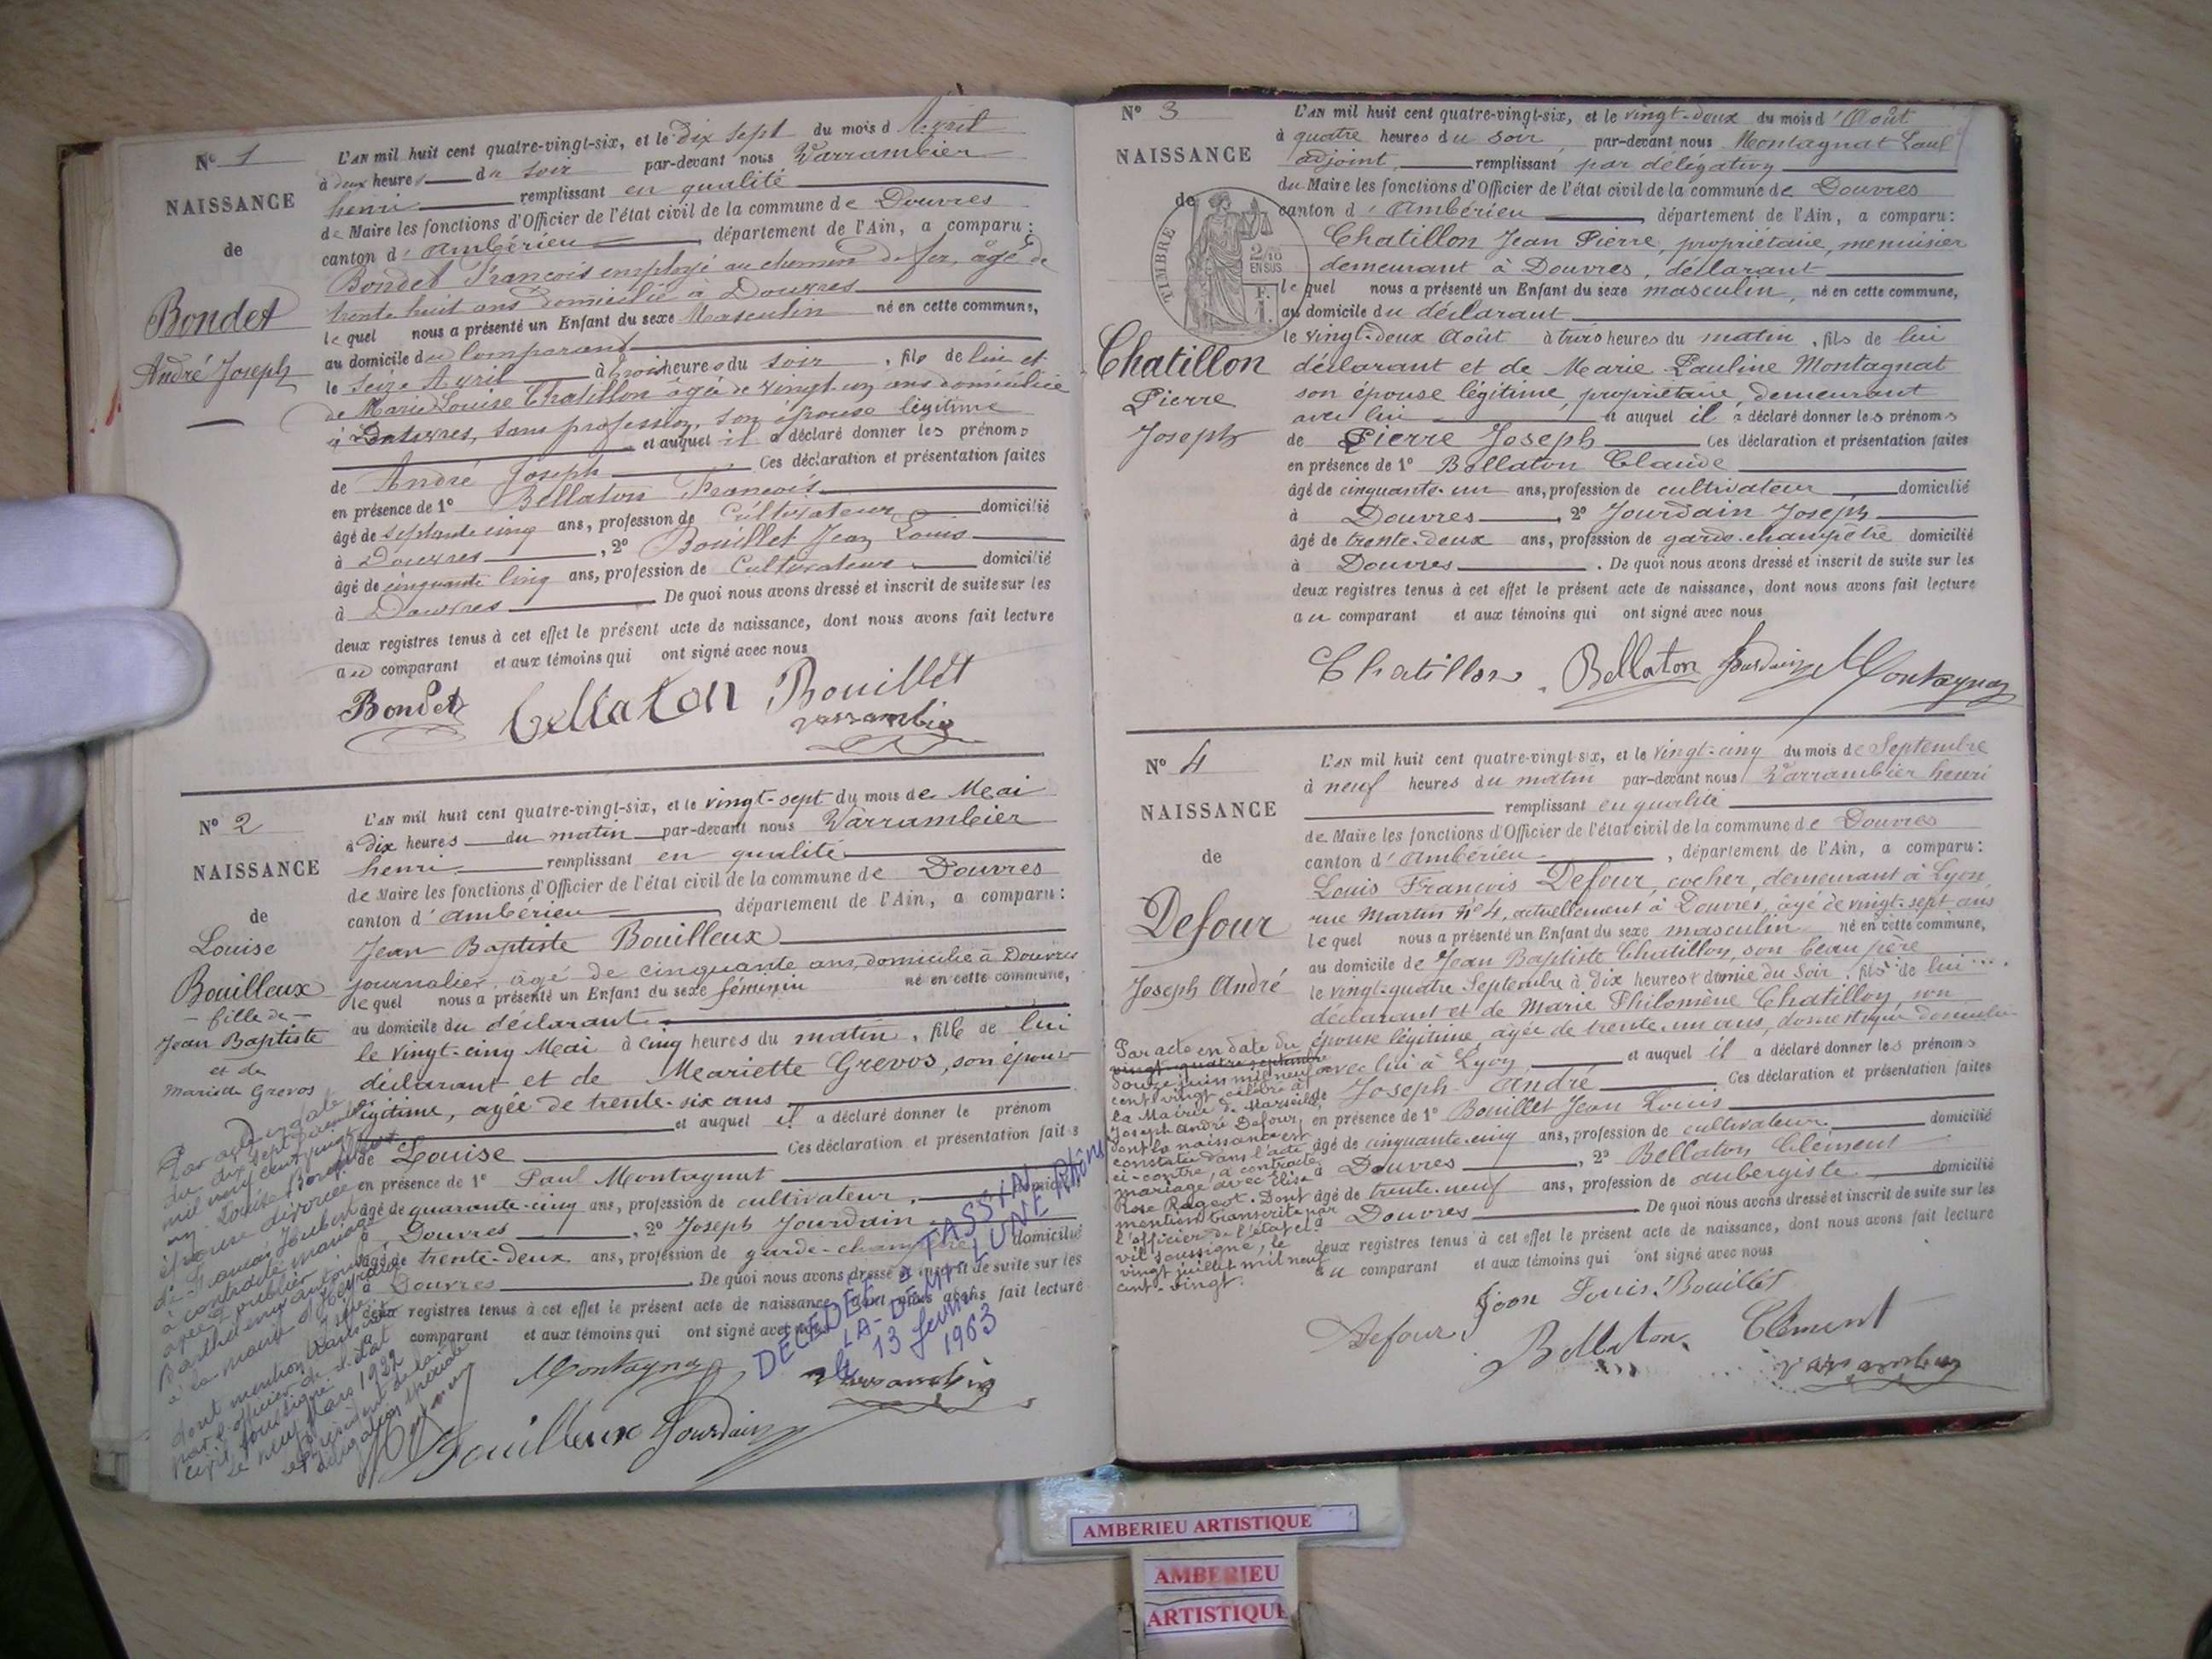 N° 1
NAISSANCE
de
Bondet
André Joseph
L'AN mil huit cent quatre-vingt-six, et le dix sept du mois d'Avril
à deux heures du soir par-devant nous Varrambier
henri remplissant en qualité
de Maire les fonctions d'Officier de l'état civil de la commune de Douvres
canton d'Ambérieu, département de l'Ain, a comparu :
Bondet François employé au chemin de fer, âgé de
trente huit ans domicilié à Douvres
lequel nous a présenté un Enfant du sexe Masculin né en cette commune,
au domicile du Comparant
le Seize Avril à trois heures du soir, fils de lui et
de Marie Louise Chatillon âgée de vingt un ans domiciliée
à Douvres, sans profession, son épouse légitime
et auquel il a déclaré donner les prénoms
de André Joseph Ces déclaration et présentation faites
en présence de 1° Bellaton François
âgé de septante cinq ans, profession de Cultivateur domicilié
à Douvres, 2° Bouillet Jean Louis
âgé de cinquante cinq ans, profession de Cultivateur domicilié
à Douvres De quoi nous avons dressé et inscrit de suite sur les
deux registres tenus à cet effet le présent acte de naissance, dont nous avons fait lecture
au comparant et aux témoins qui ont signé avec nous
Bondet Bellaton Bouillet
Varrambier
N° 2
NAISSANCE
de
Louise
Bouilleux
- fille de -
Jean Baptiste
et de
Mariette Grevos
L'AN mil huit cent quatre-vingt-six, et le vingt-sept du mois de Mai
à dix heures du matin par-devant nous Varrambier
henri remplissant en qualité
de Maire les fonctions d'Officier de l'état civil de la commune de Douvres
canton d'Ambérieu département de l'Ain, a comparu :
Jean Baptiste Bouilleux
journalier, âgé de cinquante ans, domicilié à Douvres
lequel nous a présenté un Enfant du sexe féminin né en cette commune,
au domicile du déclarant
le vingt-cinq Mai à cinq heures du matin, fille de lui
déclarant et de Mariette Grevos, son épouse
légitime, agée de trente-six ans
et auquel il a déclaré donner le prénom
de Louise Ces déclaration et présentation faites
en présence de 1° Paul Montagnat domicilié
âgé de quarante-cinq ans, profession de cultivateur,
à Douvres, 2° Joseph Jourdain
âgé de trente-deux ans, profession de garde-champêtre domicilié
à Douvres De quoi nous avons dressé et inscrit de suite sur les
deux registres tenus à cet effet le présent acte de naissance, dont nous avons fait lecture
au comparant et aux témoins qui ont signé avec nous
Montagnat Varrambier
Bouilleux Jourdain
Par acte en date
du dix sept
mil neuf cent vingt
un Louise Bouilleux
épouse divorcée
de François Hubert
a contracté mariage
dont mention
par l'officier de l'état
civil soussigné
Le neuf Mars 1922
DÉCÉDÉE à TASSIN
LA-DEMI-LUNE Rhône
le 13 février
1963
N° 3
NAISSANCE
de
TIMBRE
2/10
EN SUS
F.
1
Chatillon
Pierre
Joseph
L'AN mil huit cent quatre-vingt-six, et le vingt-deux du mois d'Août
à quatre heures du soir, par-devant nous Montagnat Paul
adjoint, remplissant par délégation
du Maire les fonctions d'Officier de l'état civil de la commune de Douvres
canton d'Ambérieu département de l'Ain, a comparu :
Chatillon Jean Pierre, propriétaire, menuisier
demeurant à Douvres, déclarant
lequel nous a présenté un Enfant du sexe masculin, né en cette commune,
au domicile du déclarant
le vingt-deux Août à trois heures du matin, fils de lui
déclarant et de Marie Pauline Montagnat
son épouse légitime, propriétaire, demeurant
avec lui et auquel il a déclaré donner les prénoms
de Pierre Joseph Ces déclaration et présentation faites
en présence de 1° Bellaton Claude
âgé de cinquante-un ans, profession de cultivateur domicilié
à Douvres, 2° Jourdain Joseph
âgé de trente-deux ans, profession de garde-champêtre domicilié
à Douvres. De quoi nous avons dressé et inscrit de suite sur les
deux registres tenus à cet effet le présent acte de naissance, dont nous avons fait lecture
au comparant et aux témoins qui ont signé avec nous
Chatillon Bellaton Jourdain Montagnat
N° 4
NAISSANCE
de
Defour
Joseph André
L'AN mil huit cent quatre-vingt-six, et le vingt-cinq du mois de Septembre
à neuf heures du matin par-devant nous Varrambier henri
remplissant en qualité
de Maire les fonctions d'Officier de l'état civil de la commune de Douvres
canton d'Ambérieu, département de l'Ain, a comparu :
Louis François Defour, cocher, demeurant à Lyon,
rue Martin N° 4, actuellement à Douvres, agé de vingt-sept ans
lequel nous a présenté un Enfant du sexe masculin né en cette commune,
au domicile de Jean Baptiste Chatillon, son beau père
le vingt-quatre Septembre à dix heures & demie du soir, fils de lui
déclarant et de Marie Philomène Chatillon, son
épouse légitime, agée de trente-un ans, domestique
avec lui à Lyon, et auquel il a déclaré donner les prénoms
de Joseph André Ces déclaration et présentation faites
en présence de 1° Bouillet Jean Louis
âgé de cinquante-cinq ans, profession de cultivateur domicilié
à Douvres, 2° Bellaton Clément
âgé de trente-neuf ans, profession de aubergiste domicilié
à Douvres De quoi nous avons dressé et inscrit de suite sur les
deux registres tenus à cet effet le présent acte de naissance, dont nous avons fait lecture
au comparant et aux témoins qui ont signé avec nous
Par acte en date du
vingt-quatre septembre
douze juin mil neuf
cent vingt, célébré à
la Mairie de Marseille
Joseph André Defour,
dont la naissance est
constatée dans l'acte
ci-contre, a contracté
mariage avec Elisa
Rose Rageot. Dont
mention transcrite par
l'officier de l'état ci-
vil soussigné, le
vingt juillet mil neuf
cent-vingt.
Jean Louis Bouillet
Defour Bellaton Clément
Varrambier
AMBERIEU ARTISTIQUE
AMBERIEU
ARTISTIQUE